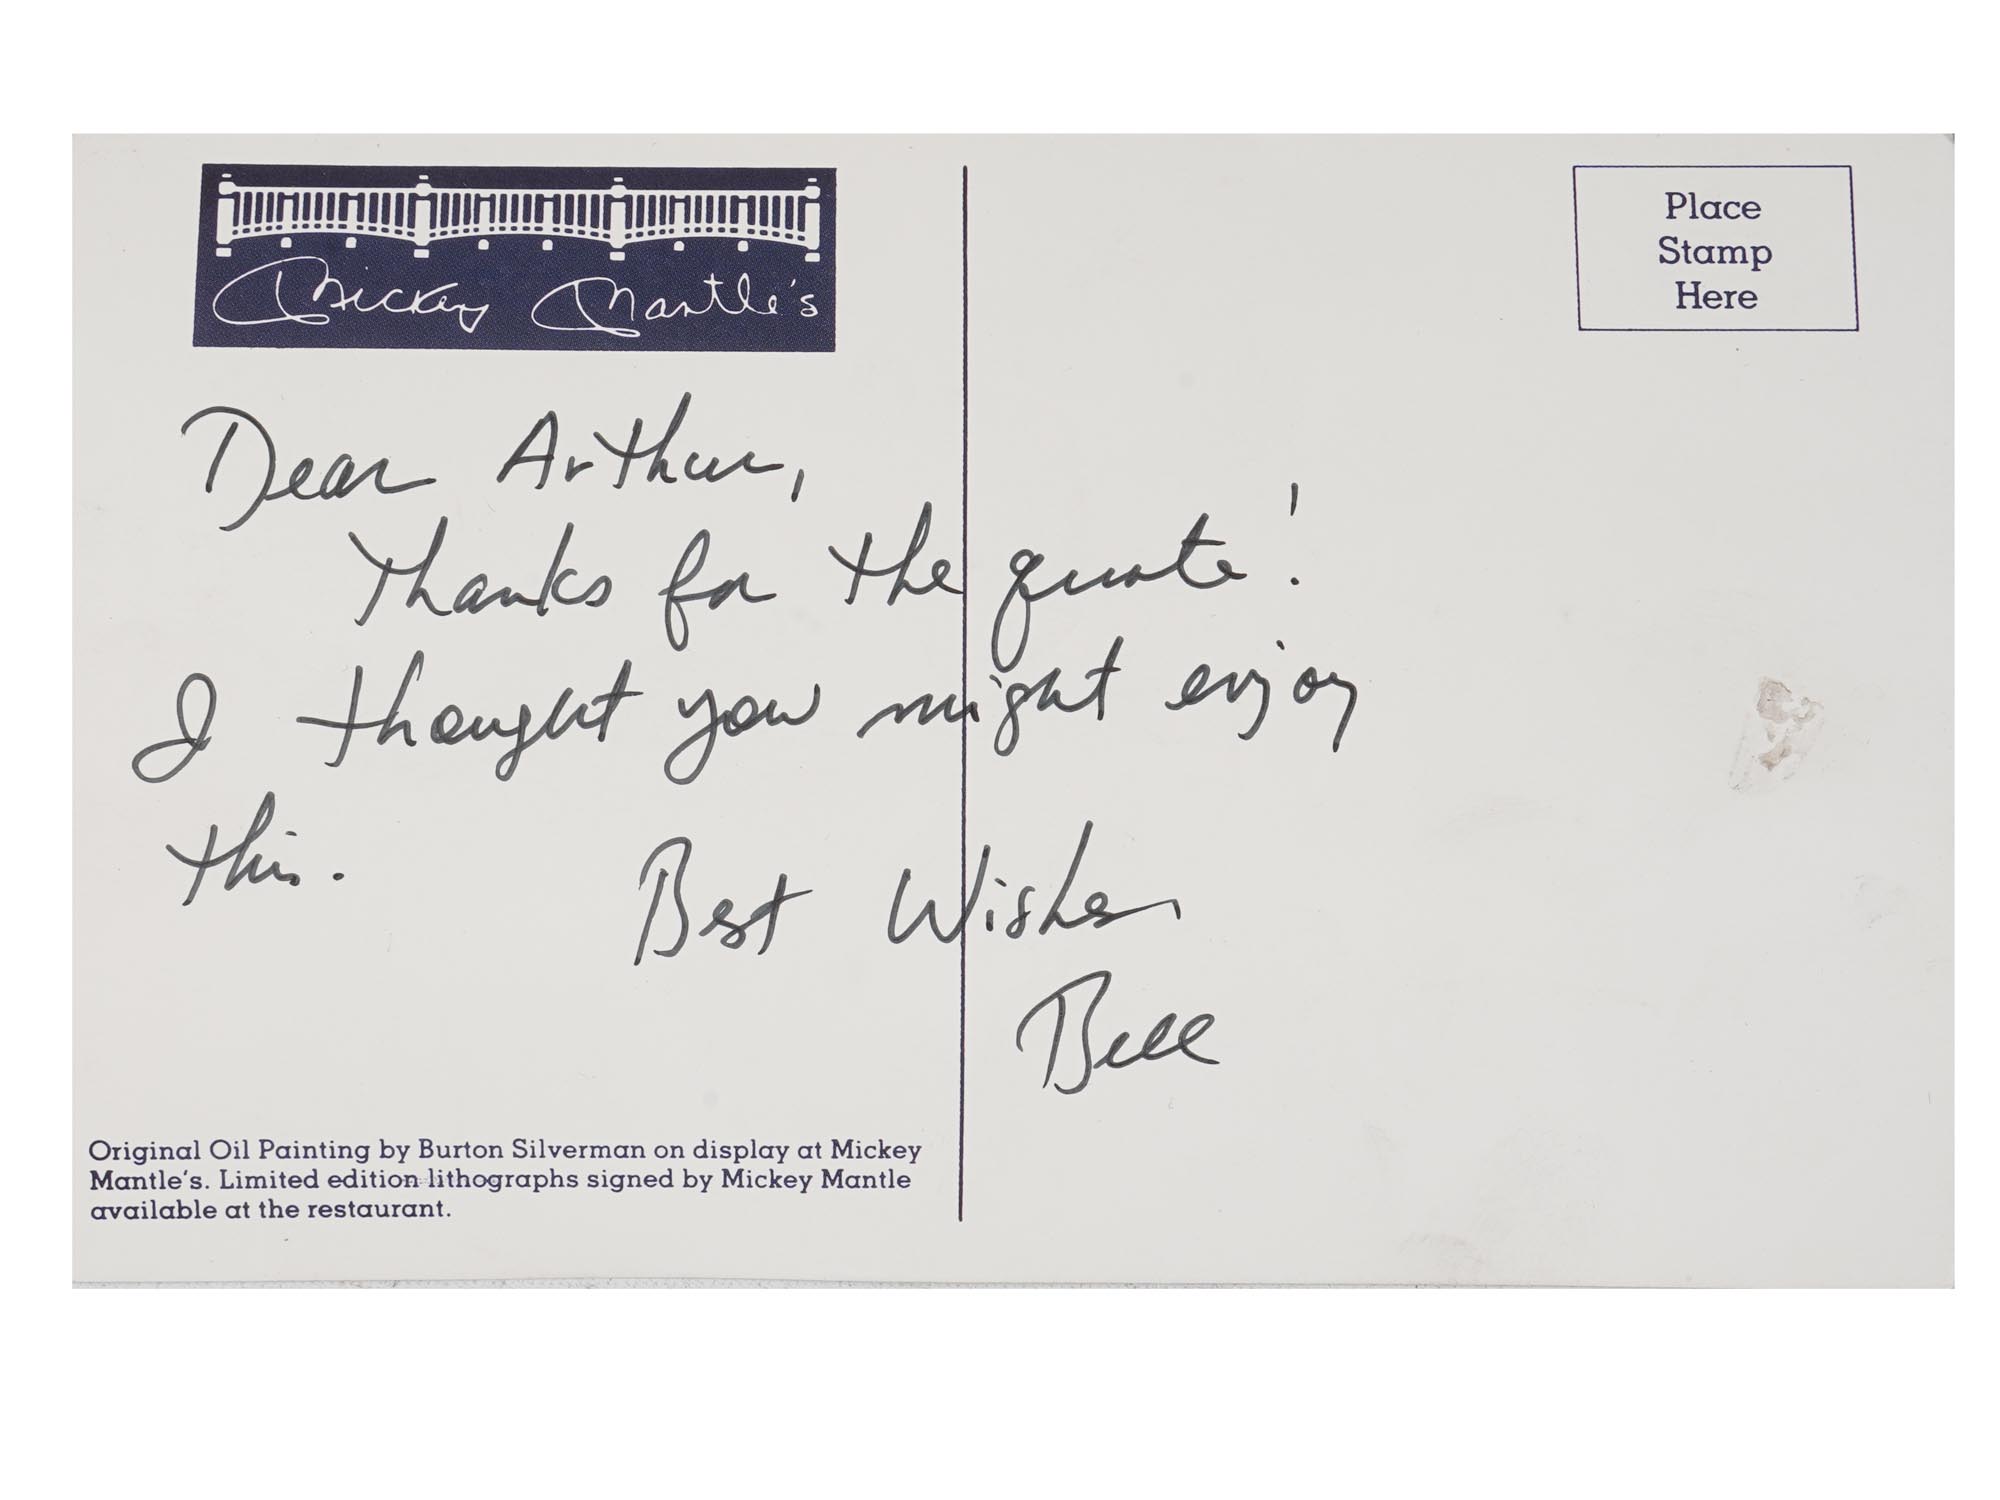 Mickey Mantle's
Place
Stamp
Here
Dear Arthur,
Thanks for the quote!
I thought you might enjoy
this.
Best Wishes
Bill
Original Oil Painting by Burton Silverman on display at Mickey
Mantle's. Limited edition lithographs signed by Mickey Mantle
available at the restaurant.